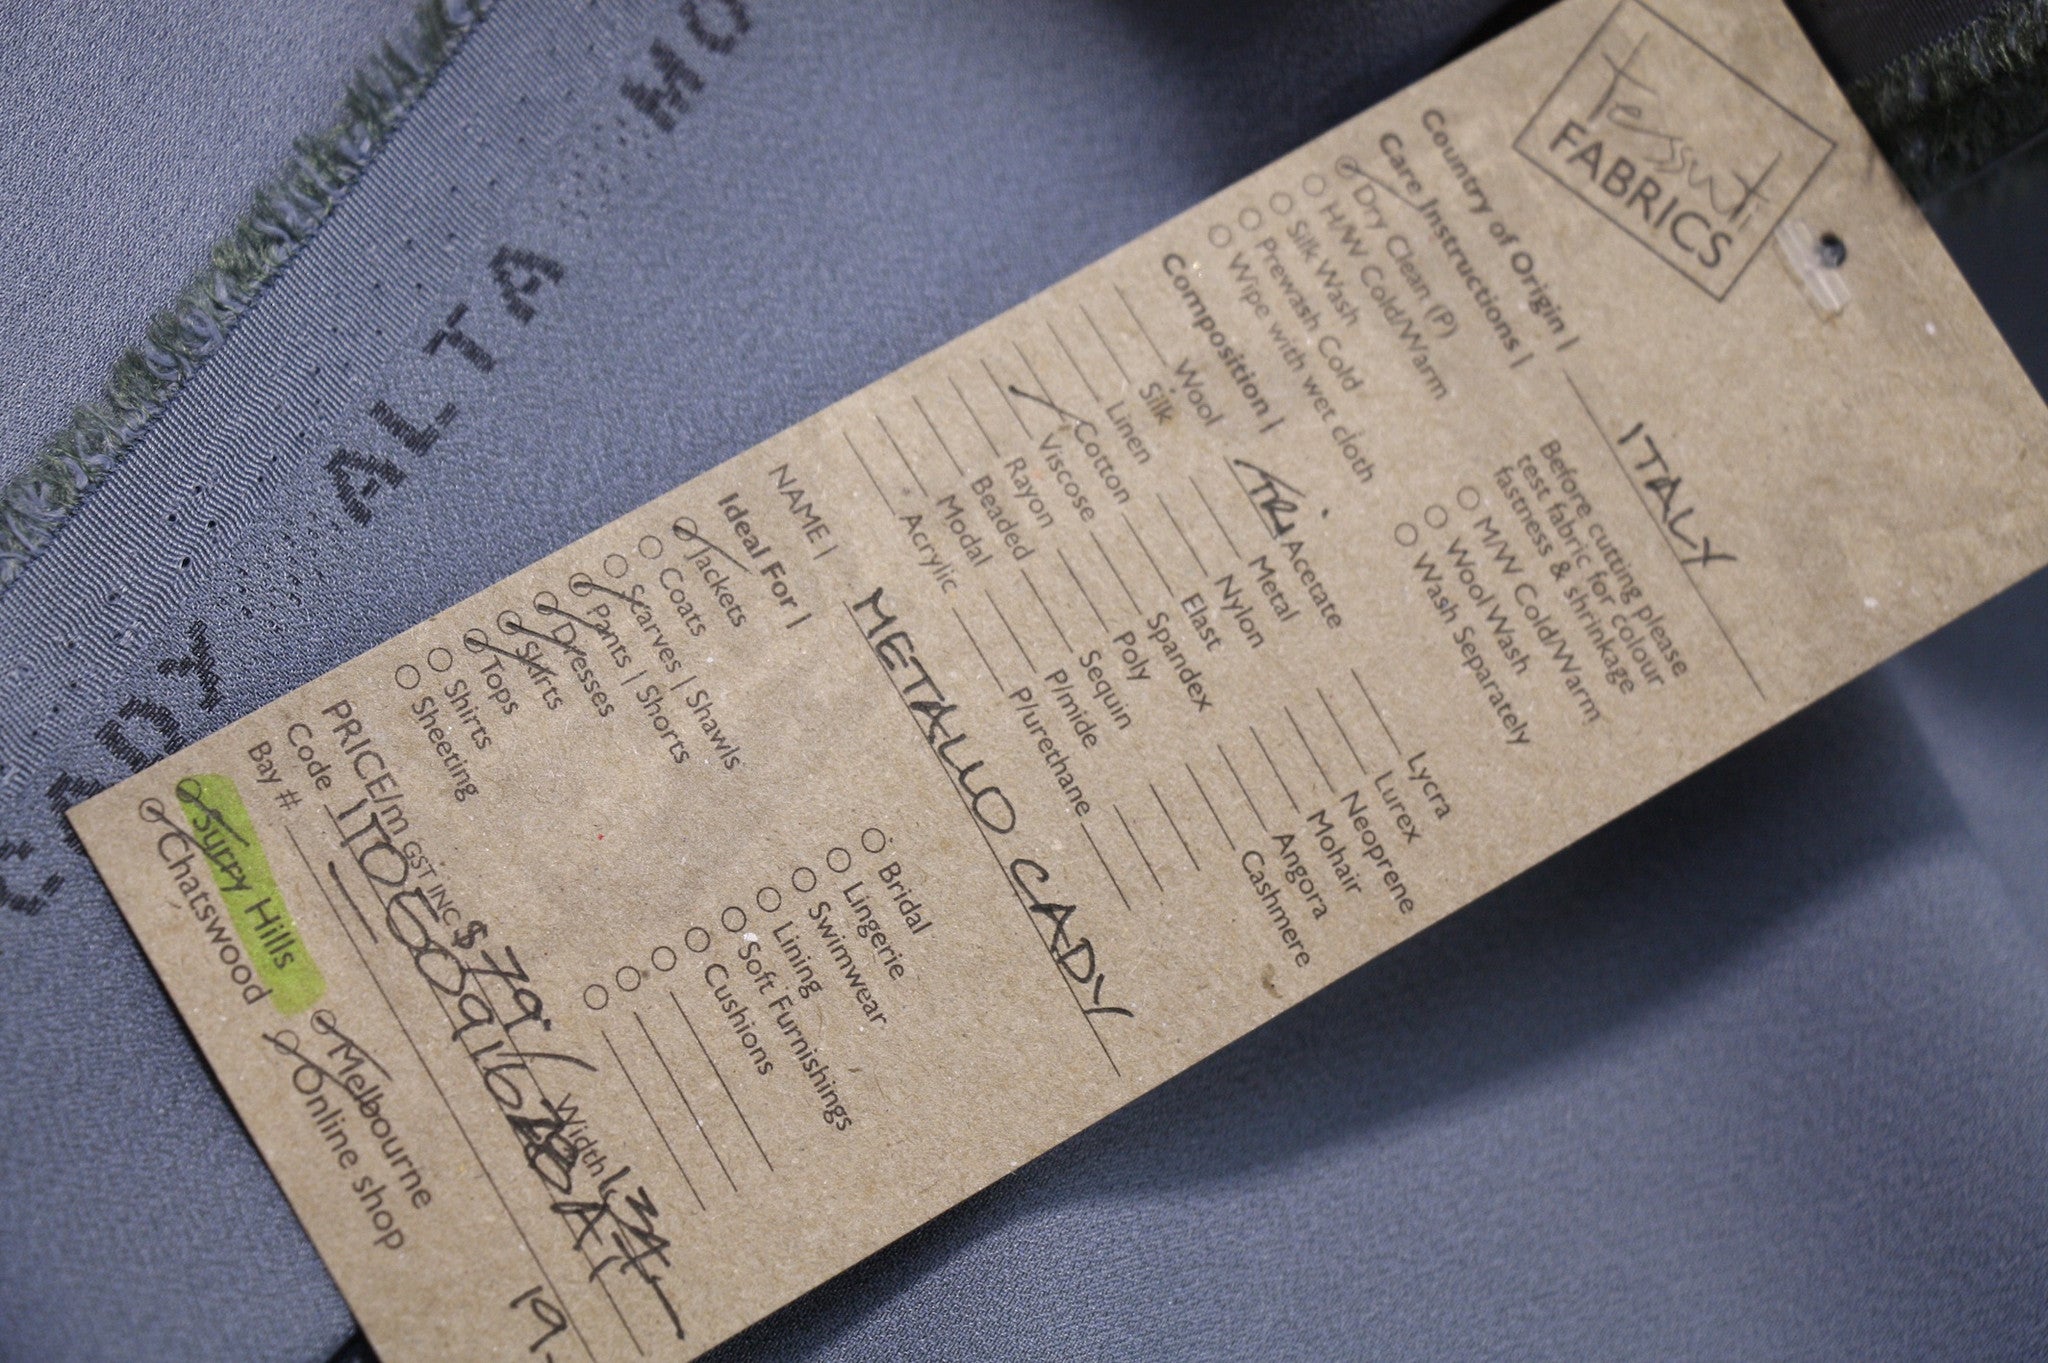 tessuti
FABRICS
Country of Origin | ITALY
Care Instructions |
Before cutting please
test fabric for colour
fastness & shrinkage
Dry Clean (P)
H/W Cold/Warm
Silk Wash
Prewash Cold
Wipe with wet cloth
M/W Cold/Warm
Wool Wash
Wash Separately
Composition |
Wool
Silk
Linen
Cotton
Viscose
Rayon
Beaded
Modal
Acrylic
TRI Acetate
Metal
Nylon
Elast
Spandex
Poly
Sequin
P/mide
P/urethane
Lycra
Lurex
Neoprene
Mohair
Angora
Cashmere
NAME | METALLO CADY
Ideal For |
Jackets
Coats
Scarves | Shawls
Pants | Shorts
Dresses
Skirts
Tops
Shirts
Sheeting
Bridal
Lingerie
Swimwear
Lining
Soft Furnishings
Cushions
PRICE/m GST INC $79. Width
Code
Bay #
Surry Hills
Chatswood
Melbourne
Online shop
CADY ALTA MO